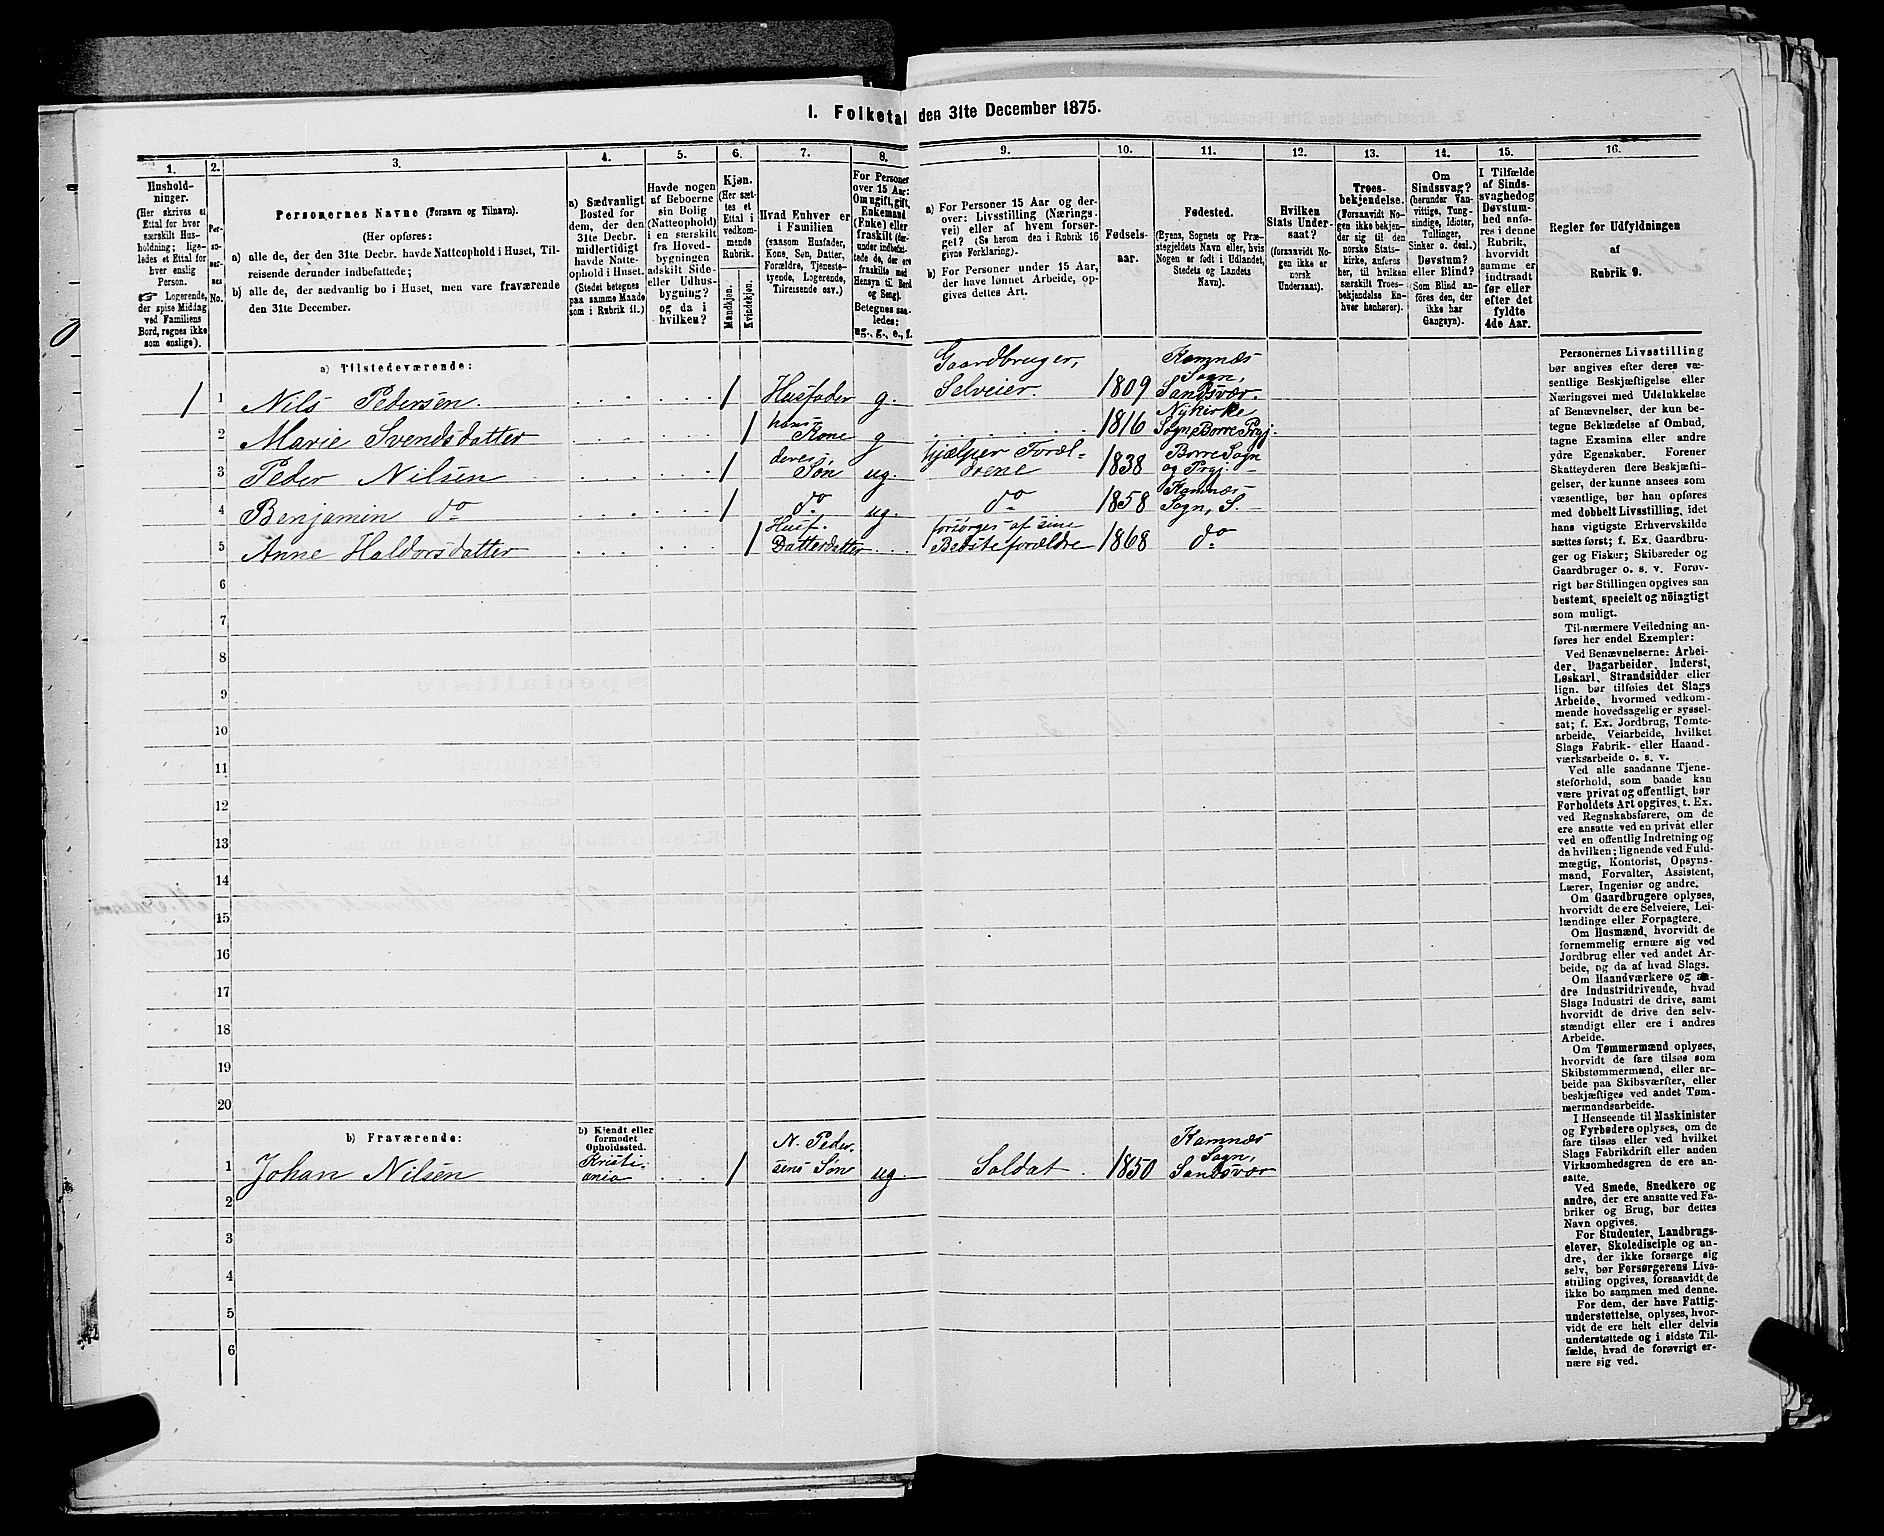 1. Folketal den 31te December 1875.
1. 2. 3. 4. 5. 6. 7. 8. 9. 10. 11. 12. 13. 14. 15. 16.
Hushold-
ninger.
(Her skrives et
Ettal for hver
særskilt Hus-
holdning; lige-
ledes et Ettal for
hver enslig
Person.
Logerende,
der spise Middag
ved Familiens
Bord, regnes ikke
som enslige).
Per-
so-
ner-
nes
No.
Personernes Navne (Fornavn og Tilnavn).
(Her opføres:
a) alle de, der den 31te Decbr. havde Natteophold i Huset, Til-
reisende derunder indbefattede;
b) alle de, der sædvanlig bo i Huset, men vare fraværende
den 31te December.
a) Sædvanligt
Bosted for
dem, der den
31te Decbr.
midlertidigt
havde Natte-
ophold i Huset.
(Stedet betegnes
paa samme Maade
som i Rubrik 11.)
Havde nogen
af Beboerne
sin Bolig
(Natteophold)
i en særskilt
fra Hoved-
bygningen
adskilt Side-
eller Udhus-
bygning?
og da i
hvilken?
Kjøn.
(Her sæt-
tes et
Ettal i
vedkom-
mende
Rubrik.
Mandkjøn.
Kvindekjøn.
Hvad Enhver er
i Familien
(saasom Husfader,
Kone, Søn, Datter,
Forældre, Tjeneste-
tyende, Logerende,
Tilreisende osv.)
For Personer
over 15 Aar:
Om ugift, gift,
Enkemand
(Enke) eller
fraskilt (der-
under indbefat-
tede de, der ere
fraskilte med
Hensyn til Bord
og Seng).
Betegnes saa-
ledes:
ug., g., e., f.
a) For Personer 15 Aar og der-
over: Livsstilling (Nærings-
vei) eller af hvem forsør-
get? (Se herom den i Rubrik 16
givne Forklaring).
b) For Personer under 15 Aar,
der have lønnet Arbeide, op-
gives dettes Art.
Fødsels-
aar.
Fødested.
(Byens, Sognets og Præ-
stegjeldets Navn eller, hvis
Nogen er født i Udlandet,
Stedets og Landets
Navn).
Hvilken
Stats Under-
saat?
(foraavidt No-
gen ikke er
norsk
Undersaat).
Troes-
bekjendelse.
(Foraavidt No-
gen ikke bekjen-
der sig til den
norske Stats-
kirke, anføres
her, til hvilken
særskilt Troes-
bekjendelse En-
hver henhører).
Om
Sindssvag?
(herunder Van-
vittige, Tung-
sindige, Idioter,
Tullinger,
Sinker o. desl.)
Døvstum?
eller Blind?
(Som Blind an-
føres den, der
ikke har
Gangsyn).
I Tilfælde
af Sinds-
svaghed og
Døvstum-
hed anfø-
res i denne
Rubrik,
hvorvidt
samme er
indtraadt
før eller
efter det
fyldte
4de Aar.
Regler for Udfyldningen
af
Rubrik 9.
a) Tilstedeværende:
1 1 Nils Pedersen. 1 Husfader g. Gaardbruger, Selveier. 1809 Komnæs Sogn, Sandsvær.
2 Marie Svendsdatter 1 hans Kone g 1816 Nykirke Sogn, Borre Prgj.
3 Peder Nilsen 1 deres Søn ug. hjælper Foræl- drene 1838 Borre Sogn og Prgj.
4 Benjamin do 1 do ug. do 1858 Komnæs Sogn, S.
5 Anne Haldorsdatter 1 Husf. Datterdatter forsørges af sine Bedsteforældre 1868 do
6
7
8
9
10
11
12
13
14
15
16
17
18
19
20
b) Fraværende:
b) Kjendt eller
formodet
Opholdssted.
1 Johan Nilsen Kristi- ania 1 N. Peder- sens Søn ug. Soldat. 1850 Komnæs Sogn, Sandsvær
2
3
4
5
6
Personernes Livsstilling
bør angives efter deres væ-
sentlige Beskjæftigelse eller
Næringsvei med Udelukkelse
af Benævnelser, der kun be-
tegne Beklædelse af Ombud,
tagne Examina eller andre
ydre Egenskaber. Forener
Skatteyderen flere Beskjæfti-
gelser, der kunne ansees som
væsentlige, bør han opføres
med dobbelt Livsstilling, idet
hans vigtigste Erhvervskilde
sættes først; f. Ex. Gaardbru-
ger og Fisker; Skibsreder og
Gaardbruger o. s. v. Forøv-
rigt bør Stillingen opgives saa
bestemt, specielt og nöiagtigt
som muligt.
Til nærmere Veiledning an-
føres her endel Exempler:
Ved Benævnelserne: Arbei-
der, Dagarbeider, Inderst,
Løskarl, Strandsidder eller
lign. bør tilføies det Slags
Arbeide, hvormed vedkom-
mende hovedsagelig er syssel-
sat; f. Ex. Jordbrug, Tomte-
arbeide, Veiarbeide, hvilket
Slags Fabrik- eller Haand-
værksarbeide o. s. v.
Ved alle saadanne Tjene-
steforhold, som baade kan
være privat og offentligt, bør
Forholdets Art opgives, t. Ex.
ved Regnskabsførere, om de
ere ansatte ved en privat eller
ved en offentlig Indretning og
da hvilken; lignende ved Fuld-
mægtig, Kontorist, Opsyns-
mand, Forvalter, Assistent,
Lærer, Ingeniør og andre.
Om Gaardbrugere oplyses,
hvorvidt de ere Selveiere, Lei-
lændinge eller Forpagtere.
Om Husmænd, hvorvidt de
fornemmelig ernære sig ved
Jordbrug eller ved andet Ar-
beide, og da af hvad Slags.
Om Haandværkere og an-
dre Industridrivende, hvad
Slags Industri de drive, samt
hvorvidt de drive den selv-
stændigt eller ere i andres
Arbeide.
Om Tømmermænd oplyses,
hvorvidt de fare tilsøs som
Skibstømmermænd, eller ar-
beide paa Skibsværfter, eller
beskjæftiges ved andet Tøm-
mermandsarbeide.
I Henseende til Maskinister
og Fyrbødere oplyses, om de
fare tilsøs eller ved hvilket
Slags Fabrikdrift eller anden
Virksomhedsgren de ere an-
satte.
Ved Smede, Snedkere og
andre, der ere ansatte ved Fa-
briker og Brug, bør dettes
Navn opgives.
For Studenter, Landbrugs-
elever, Skoledisciple og an-
dre, der ikke forsørge sig
selv, bør Forsørgerens Livs-
stilling opgives, forsaavidt de
ikke bo sammen med denne.
For dem, der have Fattig-
understøttelse, oplyses, hvor-
vidt de ere helt eller delvis
understøttede og i sidste Til-
fælde, hvad de forøvrigt er-
nære sig ved.